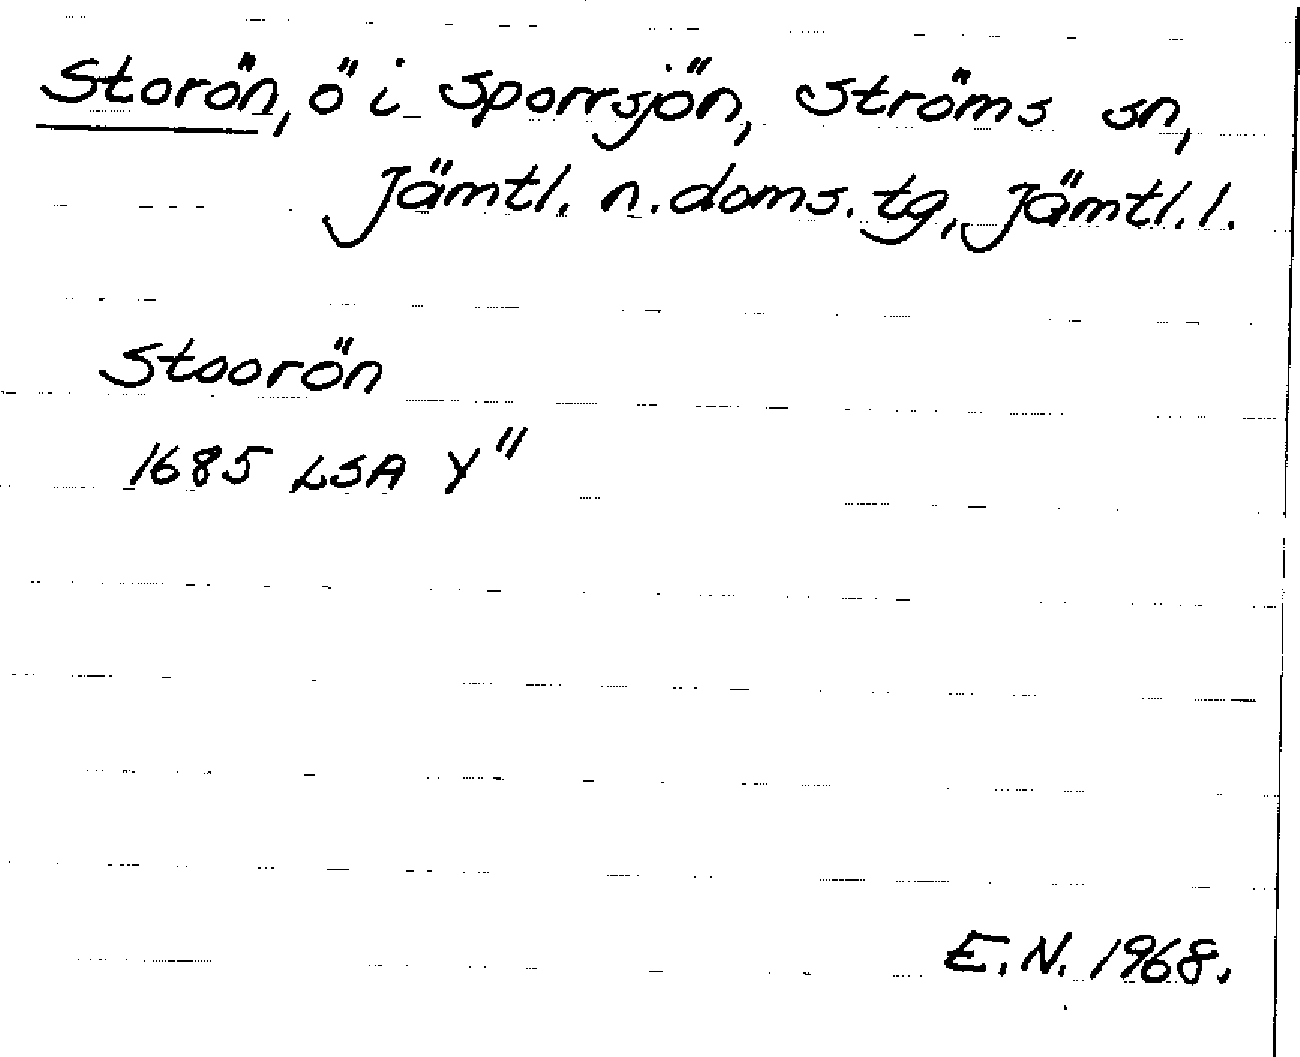 Storön, ö i Sporrsjön, Ströms sn,
Jämtl. n. doms. tg, Jämtl. l.
Stoorön
1685 LSA Y"
E.N. 1968.